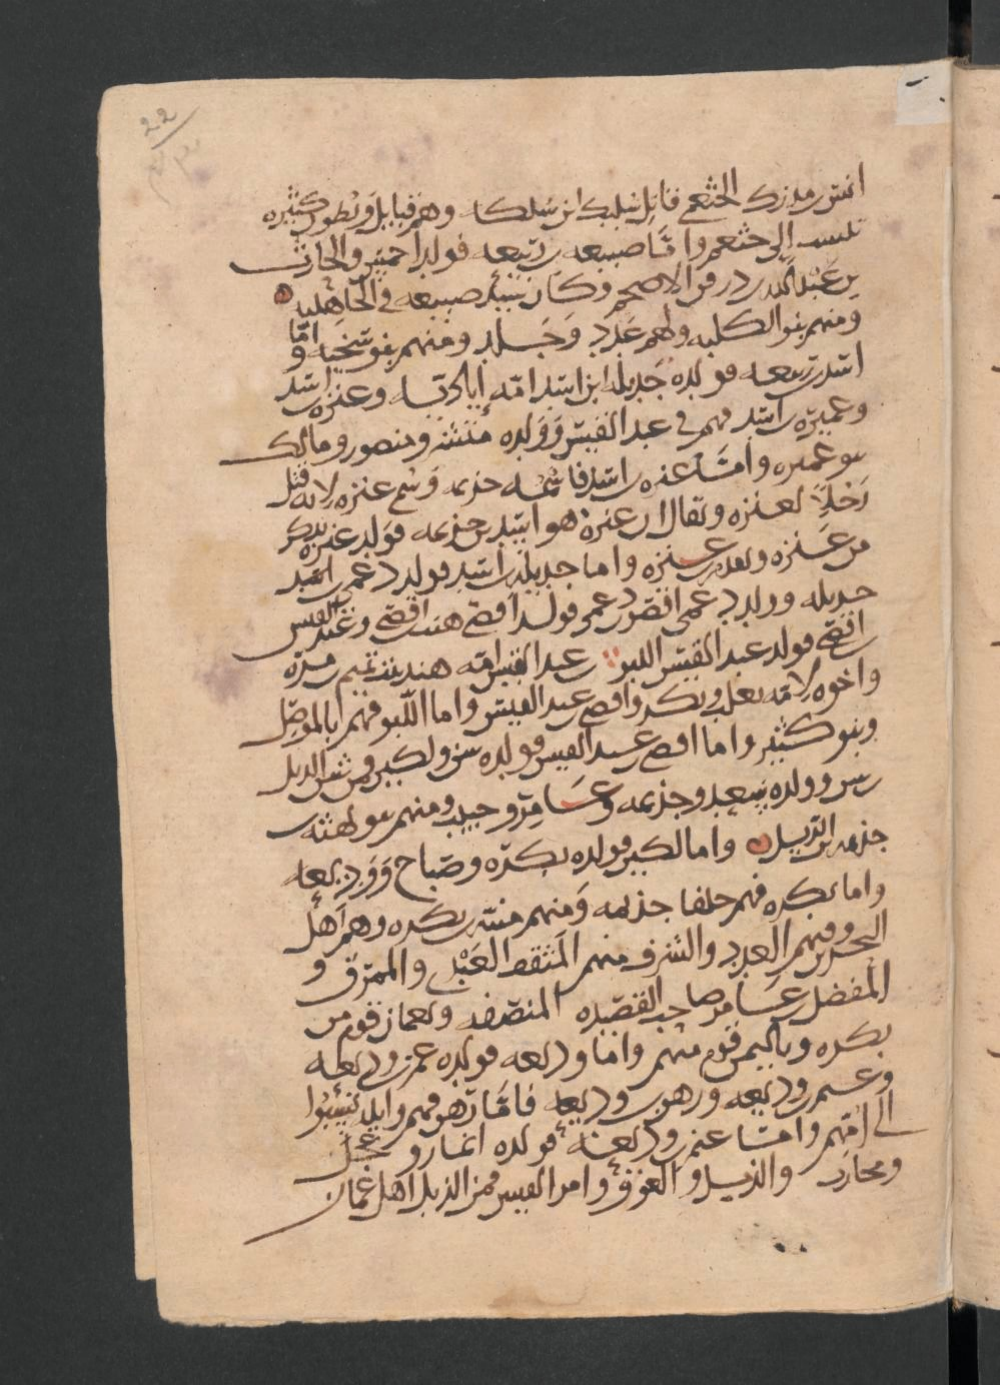 22
انس بن مدرك الخثعمي قاتل سليك ابن سلكا وهم قبايل وبطون كثيره
تنسب الى خثعم واما ضبيعه بن ربيعه فولد احمس والحارث
بن عبد الله بن دوفن الاضجم وكان سيد ضبيعه في الجاهليه
ومنهم بنو الكلبه ولهم عدد وجلد ومنهم بنو شحنه واما
اسد بن ربيعه فولده جديله ابن اسد امه اياديه وعنزه بن اسد
وعميره بن اسد فهم في عبد القيس وولده مبشر ومنصور ومالك
بنو عميره واما عنزه بن اسد فاسمه خزيمه وسمي عنزه لانه قتل
رجلا لعنزه ويقال ان عنزه هو اسد بن خزيمه فولد عنزه يذكر
بن عنزه ويقدم بن عنزه واما جديله بن اسد فولد دعمي بن اسد
جديله وولد دعمي افصى بن دعمي فولد افصى هنب بن افصى وعبد القيس
بن افصى فولد عبد القيس اللبو بن عبد القيس امه هند بنت تميم بن مره
واخوه لامه تغلب وبكر وافصى بن عبد القيس واما اللبو فهم بالموصل
وبنو كثير واما افصى بن عبد القيس فولده شن ولكيز ومن شن الديل
بن شن وولده سعد وجذيمه وعامر وحبيب ومنهم بنو لهثه بن
جذيمه بن الديل واما لكيز فولده نكره وصباح ووديعه
واما نكره فهم حلفا جذيمه ومنهم منبه بن نكره وهم اهل
البحرين وفيهم العدد والشرف منهم المثقب العبدي والممزق و
المفضل بن عامر صاحب القصيده المنصفه وبعمان قوم من
نكره وباليمن قوم منهم واما وديعه فولده عمرو بن وديعه
وغنم بن وديعه ودهن بن وديعه فاما دهن فهم وايله نسبوا
الى امهم واما عمرو بن وديعه فولده انمار وعجل
ومحارب والديل والعوق وامرا القيس فمن الديل اهل عمان